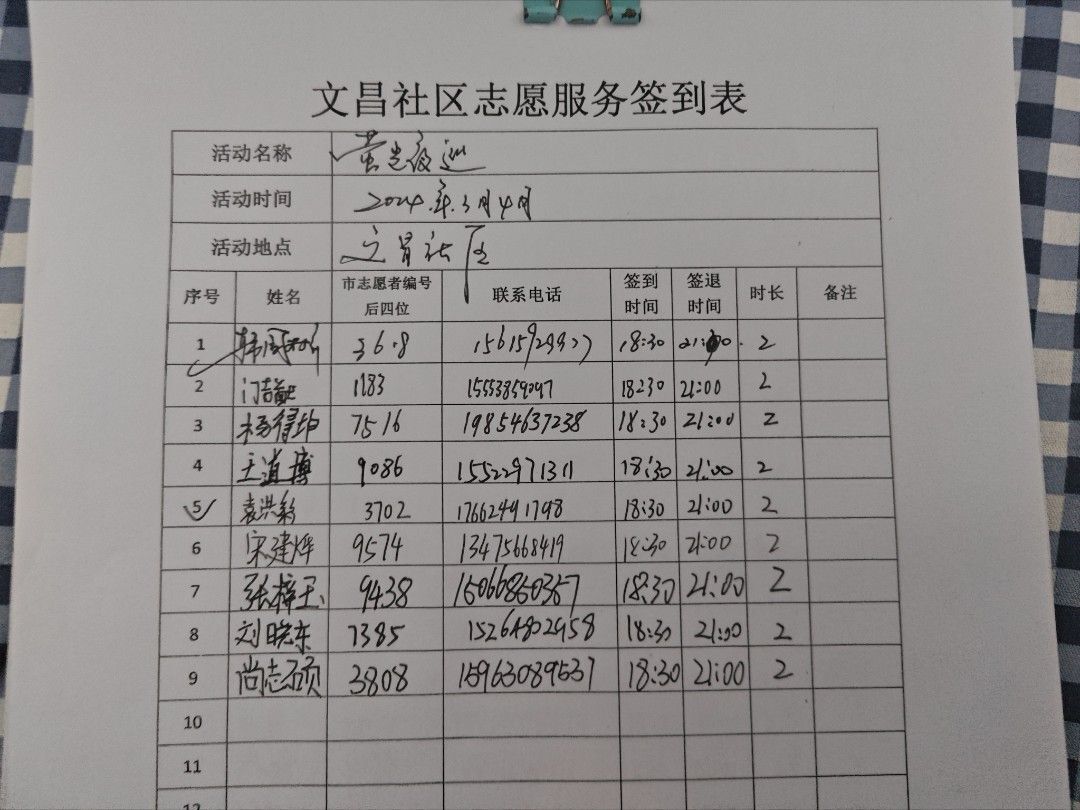 文昌社区志愿服务签到表
活动名称 萤光夜巡
活动时间 2024.年.3月4日
活动地点 文昌社区
序号 姓名 市志愿者编号后四位 联系电话 签到时间 签退时间 时长 备注
1 18:30 2
2 1183 15553859097 18:30 21:00 2
3 杨得坤 7516 19854637238 18:30 21:00 2
4 王道博 9086 15522971311 18:30 21:00 2
5 袁洪彩 3702 17662491798 18:30 21:00 2
6 宋建烨 9574 13475668419 18:30 21:00 2
7 张梓玉 9438 15066860367 18:30 21:00 2
8 刘晓东 7385 15264802958 18:30 21:00 2
9 尚志硕 3808 15963089537 18:30 21:00 2
10
11
12